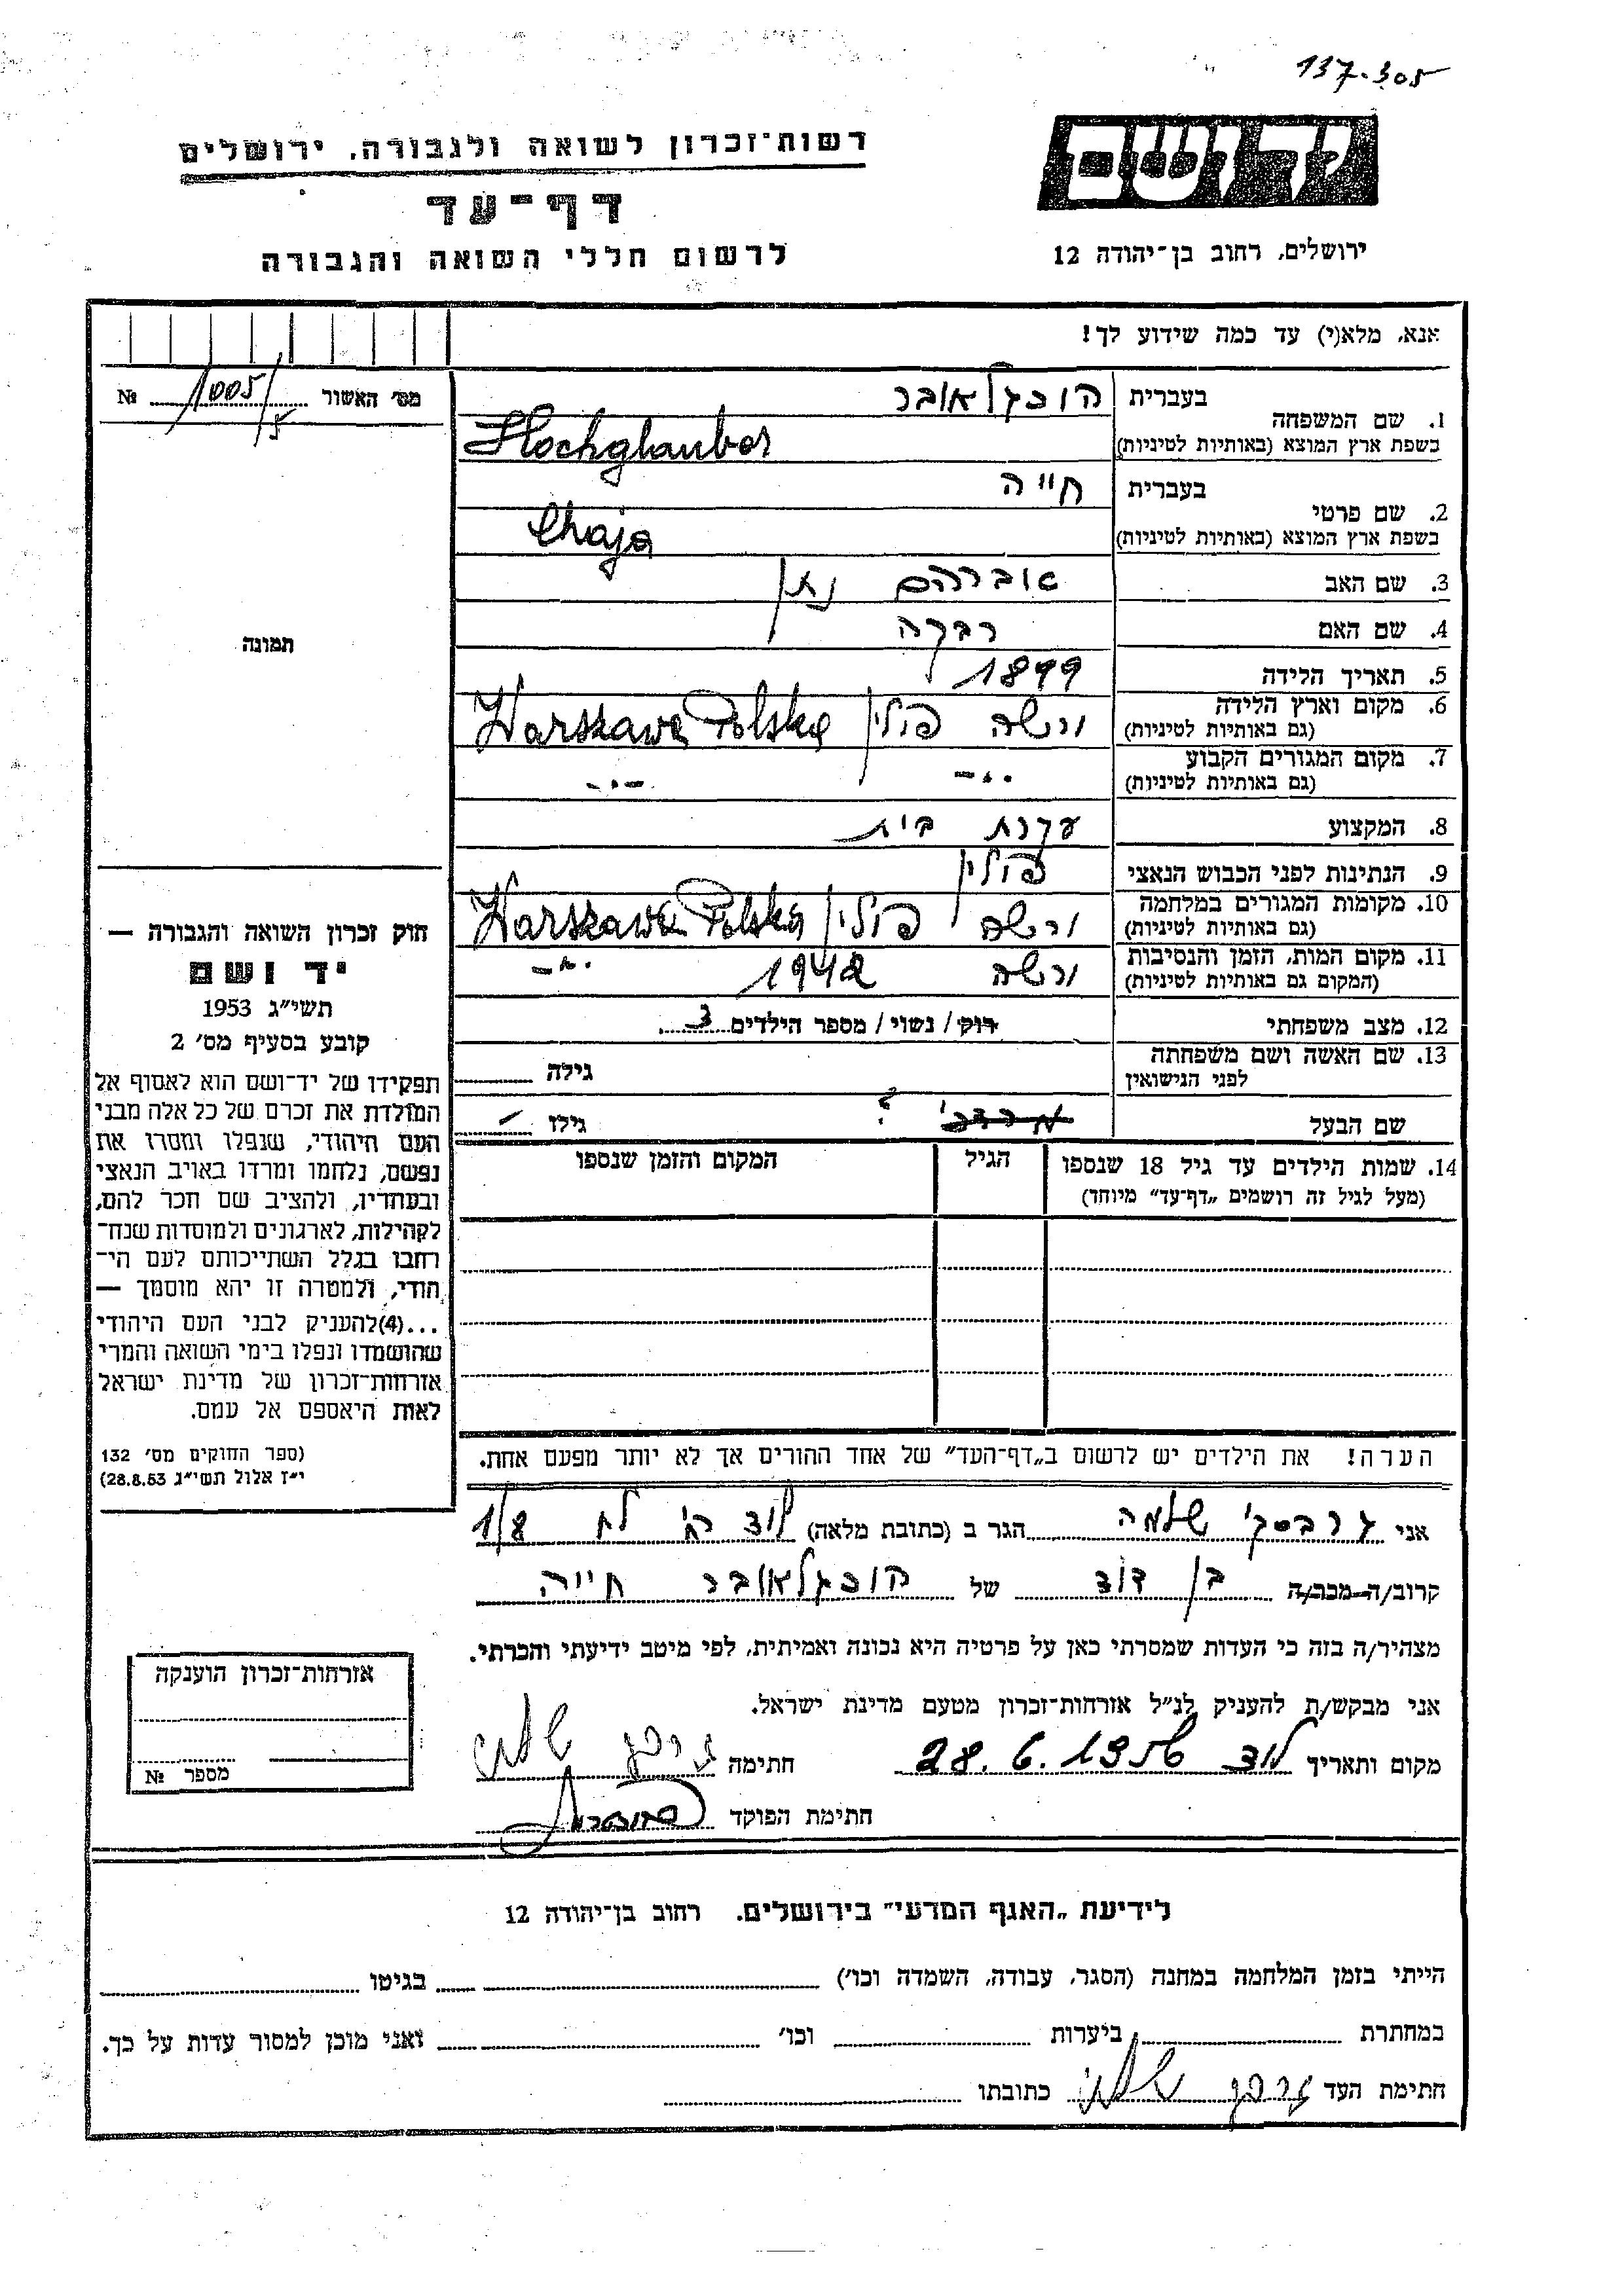 137.305
יד ושם
רשות־זכרון לשואה ולגבורה, ירושלים
דף־עד
לרשום חללי השואה והגבורה
ירושלים, רחוב בן־יהודה 12
אנא, מלא(י) עד כמה שידוע לך!
מס' האשור 1005/ №
1. שם המשפחה
בעברית הוכגלאובר
בשפת ארץ המוצא (באותיות לטיניות) Hochglauber
2. שם פרטי
בעברית חייה
בשפת ארץ המוצא (באותיות לטיניות) Chaja
3. שם האב אברהם נתן
4. שם האם רבקה
5. תאריך הלידה 1899
6. מקום וארץ הלידה ורשה פולין Warszawa Polska
(גם באותיות לטיניות)
7. מקום המגורים הקבוע -"- -"-
(גם באותיות לטיניות)
8. המקצוע עקרת בית
9. הנתינות לפני הכבוש הנאצי פולין
10. מקומות המגורים במלחמה ורשה פולין Warszawa Polska
(גם באותיות לטיניות)
11. מקום המות, הזמן והנסיבות ורשה 1942 -"-
(המקום גם באותיות לטיניות)
12. מצב משפחתי רוק/ נשוי/ מספר הילדים 3
13. שם האשה ושם משפחתה
לפני הנישואין גילה
שם הבעל ? גילו
14. שמות הילדים עד גיל 18 שנספו הגיל המקום והזמן שנספו
(מעל לגיל זה רושמים „דף־עד" מיוחד)
תמונה
חוק זכרון השואה והגבורה —
יד ושם
תשי"ג 1953
קובע בסעיף מס' 2
תפקידו של יד־ושם הוא לאסוף אל
המולדת את זכרם של כל אלה מבני
העם היהודי, שנפלו ומסרו את
נפשם, נלחמו ומרדו באויב הנאצי
ובעוזריו, ולהציב שם וזכר להם,
לקהילות, לארגונים ולמוסדות שנח־
רבו בגלל השתייכותם לעם הי־
הודי, ולמטרה זו יהא מוסמך —
...(4) להעניק לבני העם היהודי
שהושמדו ונפלו בימי השואה והמרי
אזרחות־זכרון של מדינת ישראל
לאות היאספם אל עמם.
(ספר החוקים מס' 132
י"ז אלול תשי"ג 28.8.53)
הערה! את הילדים יש לרשום ב„דף־העד" של אחד ההורים אך לא יותר מפעם אחת.
אני גרבסקי שלמה הגר ב (כתובת מלאה) לוד 1/8
קרוב/ה מכר/ה בן דוד של הוכגלאובר חייה
מצהיר/ה בזה כי העדות שמסרתי כאן על פרטיה היא נכונה ואמיתית, לפי מיטב ידיעתי והכרתי.
אני מבקש/ת להעניק לנ"ל אזרחות־זכרון מטעם מדינת ישראל.
מקום ותאריך לוד 28.6.1956 חתימה
חתימת הפוקד
אזרחות־זכרון הוענקה
מספר №
לידיעת „האגף המדעי" בירושלים. רחוב בן־יהודה 12
הייתי בזמן המלחמה במחנה (הסגר, עבודה, השמדה וכו') בגיטו
במחתרת ביערות וכו' ואני מוכן למסור עדות על כך.
חתימת העד כתובתו